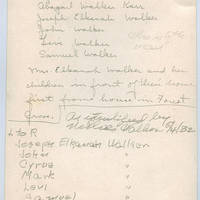 Abagail Walker Karr
Joseph Elkanah Walker
John Walker
Levi Walker
Samuel Walker
Mrs. Elkanah Walker and her
children in front of their home
first frame house in Forest
Grove.
As identified by
Walker
L to R
Joseph Elkanah Walker
John "
Cyrus "
Mark "
Levi "
Samuel "